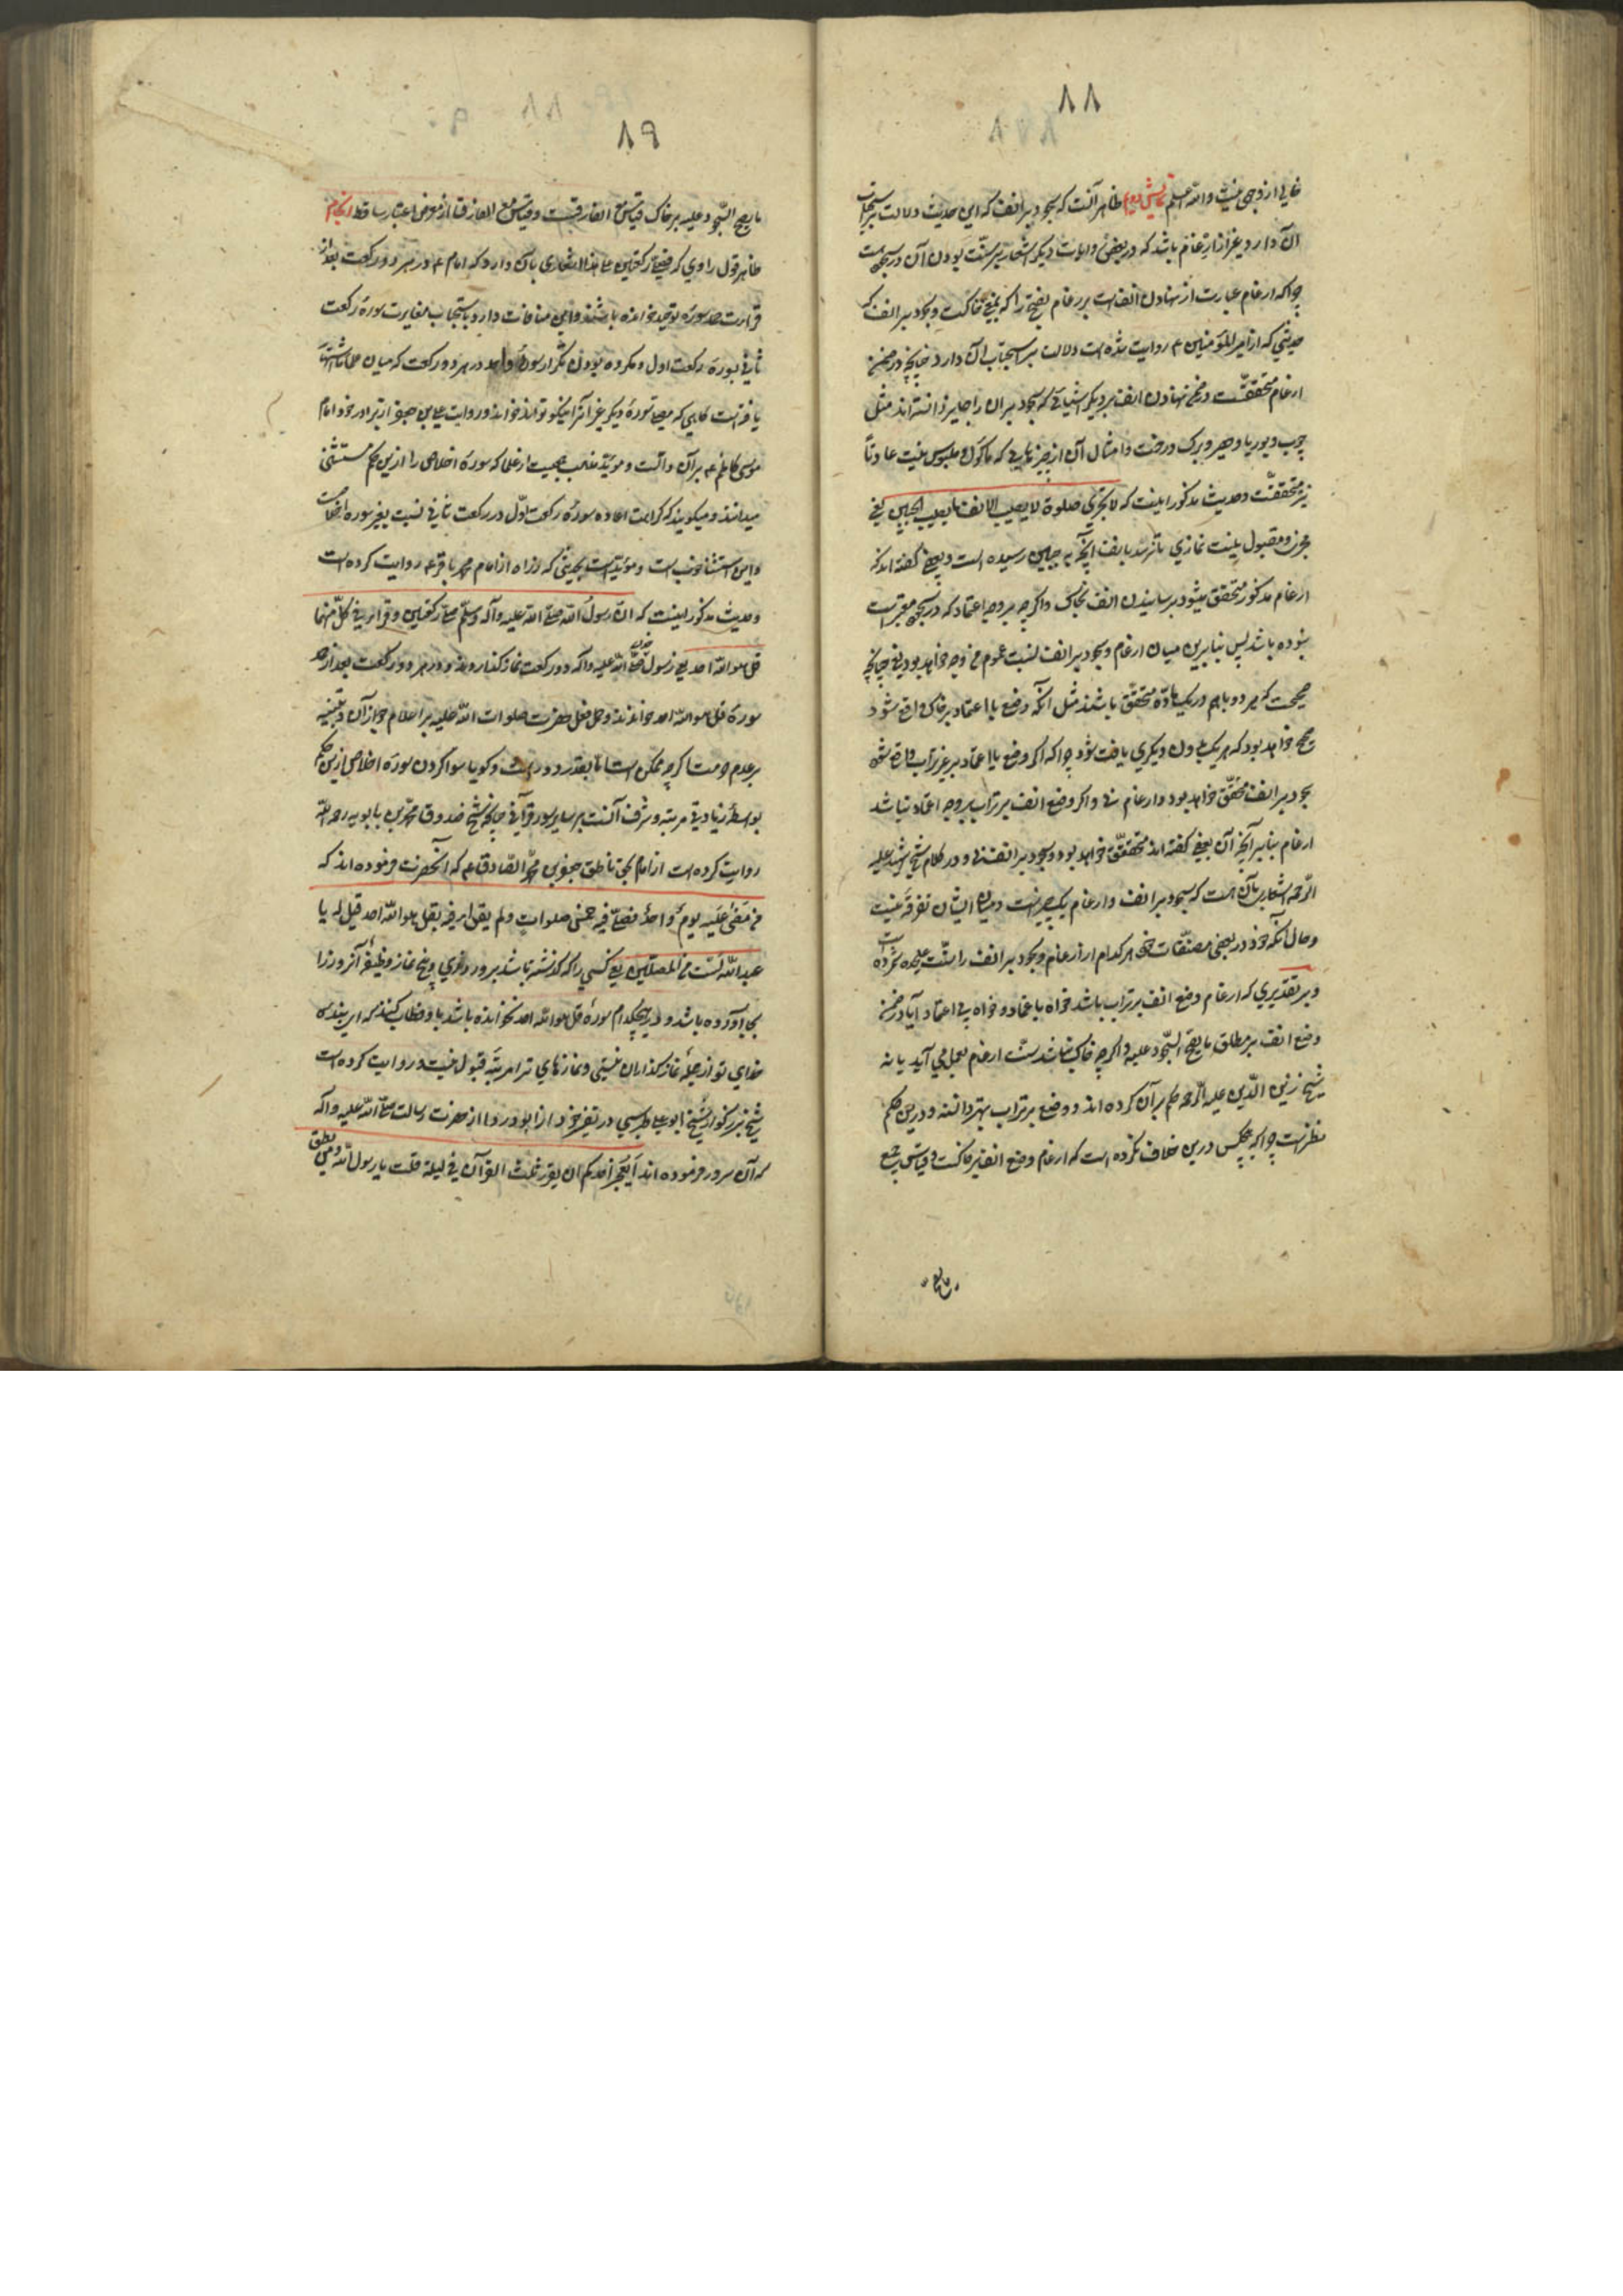 ۸۸
خالی از وجهی نیست والله اعلم ظاهر آنست که سجود بر انف که این حدیث دلالت بر استحباب
آن دارد غیر از ارغام باشد که در بعضی روایات دیگر اشعار بر سنت بودن آن در سجده هست
چراکه ارغام عبارت از نهادن انف است بر رغام بفتح را که بمعنی خاکست و سجود بر انف که
حدیثی که از امیرالمؤمنین ع روایت شده است دلالت بر استحباب آن دارد چنانچه در ضمن
ارغام متحققست در ضمن نهادن انف بر دیگر اشیائی که سجود بر آن را جایز دانسته‌اند مثل
چوب و بوریا و حصیر و برک درخت و امثال آن از چیزهایی که ماکول و ملبوس نیست عادتاً
نیز متحققست و حدیث مذکور اینست که لا تجزی صلوة لا یصیب الانف ما یصیب الجبین یعنی
مجزی و مقبول نیست نمازی که نرسد بانف آنچه به جبین رسیده است و بعضی گفته‌اند که
ارغام مذکور متحقق میشود برسانیدن انف بخاک و اگرچه بر وجه اعتماد که در سجده معتبرست
نبوده باشد پس بنابرین میان ارغام و سجود بر انف نسبت عموم من وجه خواهد بود یعنی چنانچه
صحیحست که هر دو باهم در یک ماده متحقق باشند مثل آنکه وضع با اعتماد بر خاک واقع شود
صحیح خواهد بود که هر یک بدون دیگری یافت شود چراکه اگر وضع با اعتماد بر غیر تراب واقع شود
سجود بر انف متحقق خواهد بود و ارغام نه و اگر وضع انف بر تراب بر وجه اعتماد نباشد
ارغام بنابر آنچه آن بعض گفته‌اند متحقق خواهد بود و سجود بر انف نه و در کلام شیخ شهید علیه
الرحمه اشعار بآن هست که سجود بر انف و ارغام یک چیزست و میان ایشان تفرقه نیست
و حال آنکه خود در بعضی مصنفات خود هر کدام از ارغام و سجود بر انف را سنت علیحده شمرده است
و بر تقدیری که ارغام وضع انف بر تراب باشد خواه با اعتماد و خواه بی اعتماد آیا در ضمن
وضع انف بر مطلق ما یصح السجود علیه و اگرچه خاک نباشد سنت ارغام بعمل می آید یا نه
شیخ زین الدین علیه الرحمه حکم بر آن کرده‌اند و وضع بر تراب بهتر دانسته و درین حکم
نظرست چراکه هیچکس درین خلاف نکرده است که ارغام وضع انف بر خاکست و قیاس وضع
۸۹
ما یصح السجود علیه بر خاک قیاس مع الفارقست و قیاس مع الفارق از معرض اعتبار ساقط
ظاهر قول راوی که فصلی رکعتین اشعاری بآن دارد که امام ع در هر دو رکعت بعد از
قرائت حمد سوره توحید خوانده باشند و این منافات دارد باستحباب مغایرت سوره رکعت
ثانی بسوره رکعت اول و مکروه بودن تکرار سوره واحد در هر دو رکعت که میان علما اشتهار
یافته است گاهی که مصلی سوره دیگر غیر آنرا نیکو تواند خواند و روایت علی بن جعفر از برادر خود امام
موسی کاظم ع بر آن دالست و مؤید مذهب جمعیست از علما که سوره اخلاص را ازین حکم مستثنی
میدانند و میگویند که کراهت اعاده سوره رکعت اول در رکعت ثانی نسبت بغیر سوره اخلاص است
و این استثنا خوب است و مؤید آنست حدیثی که زراره از امام محمد باقر ع روایت کرده است
و حدیث مذکور اینست که ان رسول الله صلی الله علیه وآله وسلم صلی رکعتین وقرأ فی کل منهما
قل هو الله احد یعنی رسول خدا صلی الله علیه وآله دو رکعت نماز گذاردند و در هر دو رکعت بعد از حمد
سوره قل هو الله احد خواندند و حمل فعل حضرت صلوات الله علیه بر اعلام جواز آن و تنبیه
بر عدم حرمت اگرچه ممکن است اما بغایت دورست و گویا سوا کردن سوره اخلاص ازین حکم
بواسطه زیادتی مرتبه و شرف آنست بر سایر سور قرآنی چنانچه شیخ صدوق محمد بن بابویه رحمه الله
روایت کرده است از امام بحق ناطق جعفر بن محمد الصادق ع که آنحضرت فرموده‌اند که
من مضی علیه یوم واحد فصلی فیه خمس صلوات ولم یقرأ فیه بقل هو الله احد قیل له یا
عبدالله لست من المصلین یعنی کسی را که گذشته باشد برو روزی و پنج نماز وظیفه آنروز را
بجا آورده باشد و در هیچکدام سوره قل هو الله احد نخوانده باشد باو خطاب کنند که ای بنده
خدای تو از جمله نماز گذاران نیستی و نمازهای ترا مرتبه قبول نیست و روایت کرده است
شیخ بزرگوار شیخ ابوعلی طبرسی در تفسیر خود از ابو دردا از حضرت رسالت صلی الله علیه وآله
که آن سرور فرموده‌اند ایعجز احدکم ان یقرأ ثلث القرآن فی لیلة قلت یا رسول الله ومن یطق